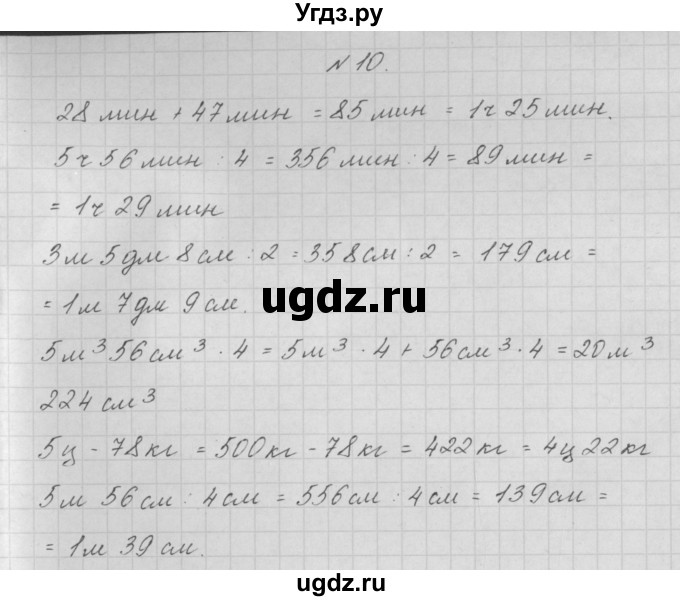 Угдз.ру
N 10.
28 мин + 47 мин = 85 мин = 1ч 25 мин.
5ч 56 мин : 4 = 356 мин : 4 = 89 мин =
= 1ч 29 мин
3м 5дм 8см : 2 = 358см : 2 = 179см =
= 1м 7дм 9см.
ugdz.ru
5м³ 56см³ · 4 = 5м³ · 4 + 56см³ · 4 = 20м³
224см³
5ц - 78кг = 500кг - 78кг = 422кг = 4ц 22кг
5м 56см : 4см = 556см : 4см = 139см =
= 1м 39см.
ugdz.ru